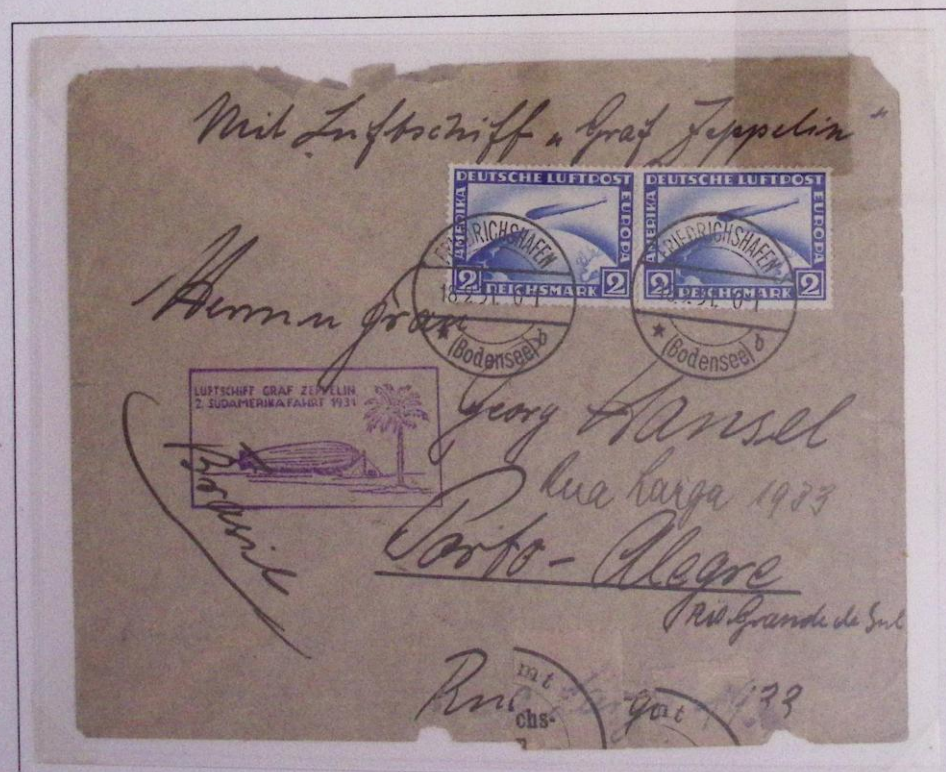 Mit Luftschiff „Graf Zeppelin"
DEUTSCHE LUFTPOST
AMERIKA
EUROPA
2 REICHSMARK 2
DEUTSCHE LUFTPOST
AMERIKA
EUROPA
2 REICHSMARK 2
FRIEDRICHSHAFEN
(Bodensee) d
FRIEDRICHSHAFEN
(Bodensee) d
Herrn
LUFTSCHIFF GRAF ZEPPELIN
2. SÜDAMERIKAFAHRT 1931
Brasil
Georg Hansel
Rua Larga 1933
Porto-Alegre
Rio Grande de Sul
mt
chs-